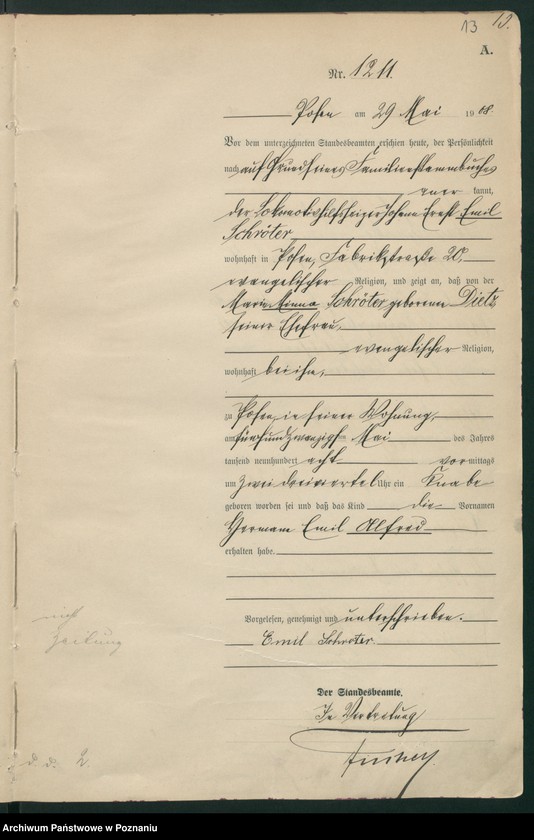 13 13.
A.
Nr. 1211.
Posen am 29 Mai 1908.
Vor dem unterzeichneten Standesbeamten erschien heute, der Persönlichkeit
nach auf Grund seines Familienstammbuches
kannt,
der Lokomotivhilfsheizer Johann Ernst Emil
Schröter
wohnhaft in Posen, Fabrikstraße 20,
evangelischer Religion, und zeigt an, daß von der
Marie Minna Schröter geborenen Dietz
seiner Ehefrau,
evangelischer Religion,
wohnhaft bei ihm,
zu Posen in seiner Wohnung,
am fünfundzwanzigsten Mai des Jahres
tausend neunhundert acht vormittags
um zwei dreiviertel Uhr ein Knabe
geboren worden sei und daß das Kind die Vornamen
Hermann Emil Alfred
erhalten habe.
Vorgelesen, genehmigt und unterschrieben.
Emil Schröter.
Der Standesbeamte.
In Vertretung
Zeitung
Archiwum Państwowe w Poznaniu